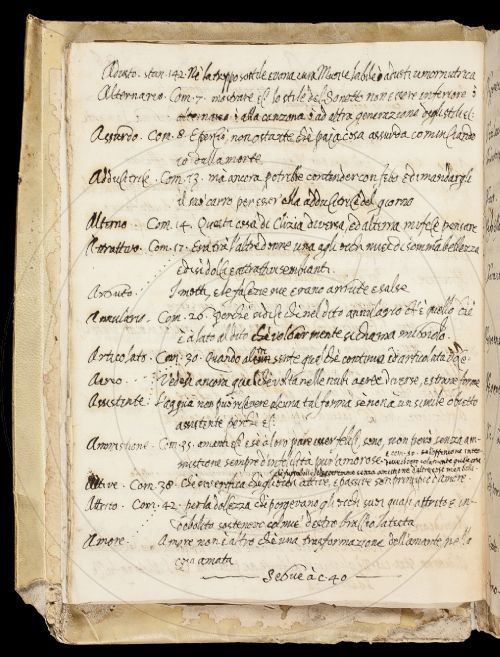 Adusto. stan. 142. Nè la troppo sottile e vana cura Move la bile ò adusti umor nutrica
Alternareo. Com. 7. mostrare il lo stile del Sonetto non essere inferiore ò
alternareo ò alla canzona ò ad altra generazione degli stili
Assurdo. Com. 8. E perciò non ostante che paja cosa assurda cominciando
io dalla morte
Adduttrice. Com. 13. ma ancora potrebbe contender con febo et dimandargli
il suo carro per esser ella adduttrice del giorno
Alterno. Com. 14. Questa cosa di Clizia diversa, ed alterna mi fece pensare
Attrattivo. Com. 17. Era tra l'altre donne una agli occhi nostri di somma bellezza
e di sì dolci e attrattivi sembianti
Arguto. I motti, e le facezie sue erano argute e salse
Annulario. Com. 20. perchè si dice che nel dito annulario ch'è quello che
è a lato al dito che volgarmente si chiama mignolo
Articolato. Com. 30. Quando alcun sente qualche continua ed articolata
Aereo. Vedesi ancora qualche volta nelle nubi aeree diverse, e strane forme
Assistente. l'acqua non può ritenere alcuna tal forma se non à un simile obietto
assistente
Ammistione. Com. 35. amanti ed essi a loro pareva terribili, sono, non però senza am-
mistione sempre d'infinita pietà amorose
Attive. Com. 38. attive, e passive son principio d'amore
Attrito. Com. 42. per la dolcezza che porgevano gli occhi suoi quali attrito e in-
debolito sostenere come destro
Amore. Amore non è altro che una trasformazione dell'amante nella
cosa amata
Segue à c. 40